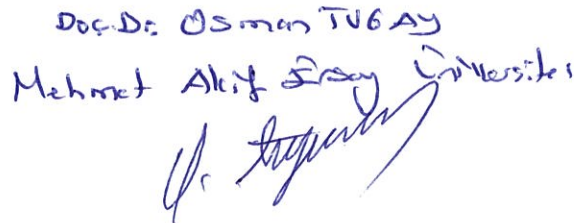 Doç.Dr. Osman TUGAY
Mehmet Akif Ersoy Üniversitesi